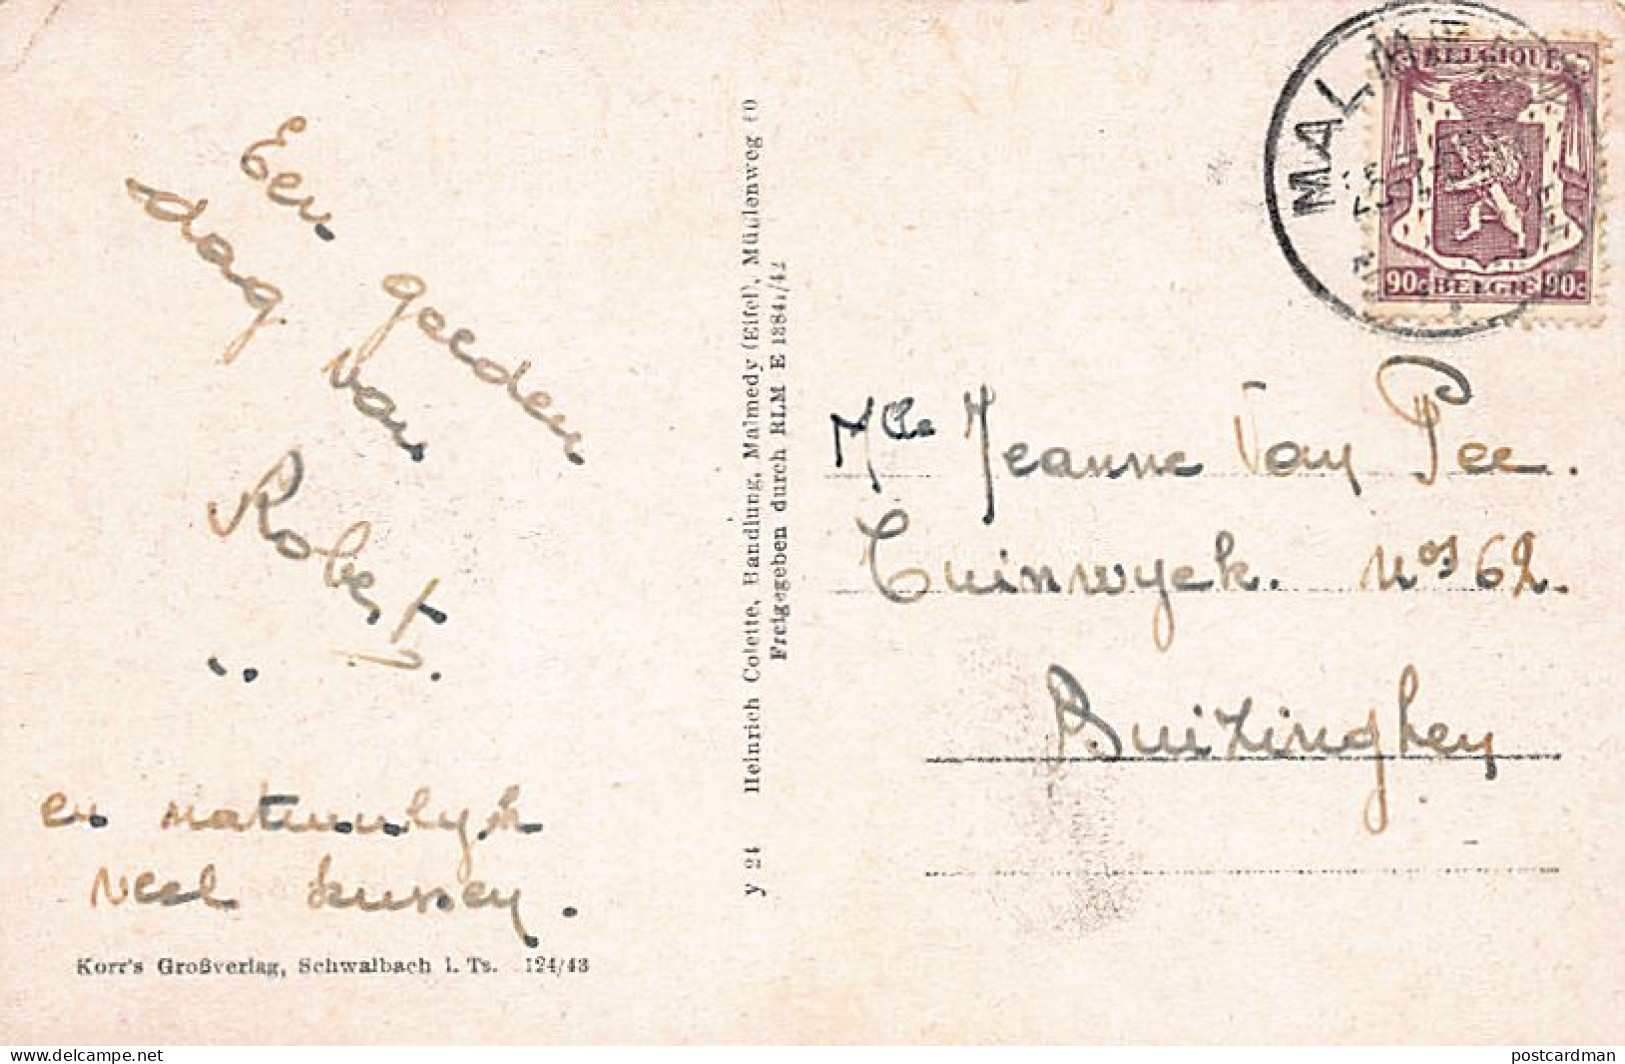 Een goeden
dag van
Robert.
en natuurlyk
veel kussen.
Korr's Großverlag, Schwalbach i. Ts. 124/43
y 24 Heinrich Colette, Handlung, Malmedy (Eifel), Mühlenweg 10
Freigegeben durch RLM E
MALMEDY
BELGIQUE
90c BELGIE 90c
Mlle Jeanne Van Pee.
Tuinwyck. Nos 62.
Buizinghen
delcampe.net
postcardman